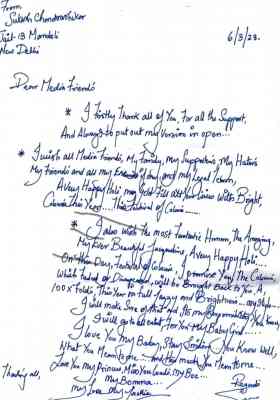 From
Sukesh Chandrashekar
Jail-13 Mandoli
New Delhi
6/3/23.
Dear Media Friends
* I firstly Thank all of You, For all the Support,
And Always to put out my Version in open...
* I wish all Media Friends, My Family, My Supporters My Haters
My Friends and all my Enemies of Law, and my Legal Team,
A Very Happy Holi may God Fill all your Lives With Bright,
Colours This Year... This Festival of Colours ......
* I also wish the most Fantastic Human, The Amazing,
My Ever Beautiful Jacqueline, A very Happy Holi...
On This Day, Festival of Colours, I promise You, The Colours
Which Faded or Disappeared, will be Brought Back to You A,
100 x Folds, This Year on Full Happy and Brightness... my Style...
I will make Sure of that and, Its my Responsibility, You know,
I will go to all extent, For You My Baby Girl ...
I Love You My Baby, Stay Smiling, You Know Well,
What You Mean to me - and how much You Mean to me..
Love You my Princess, Miss You Loads, My Bee...
My Bomma...
My Love My Jackie
Thanking all,
Regards